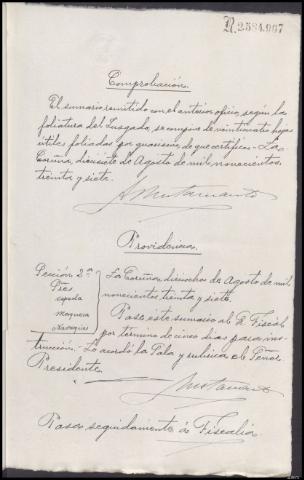 R.2584.907
Comprobación.
El sumario remitido con el anterior oficio, según la
foliatura del Juzgado, se compone de veinticuatro hojas
útiles foliadas por guarismo, de que certifico.- La
Coruña, dieciséis de Agosto de mil novecientos
treinta y siete.
Providencia
Sección 2ª
Sres
La Coruña, dieciocho de Agosto de mil
novecientos treinta y siete.
Pase este sumario al Sr. Fiscal
por término de cinco días para ins-
trucción.- Lo acordó la Sala y rubrica el Señor
Presidente.
Pasa seguidamente á Fiscalía